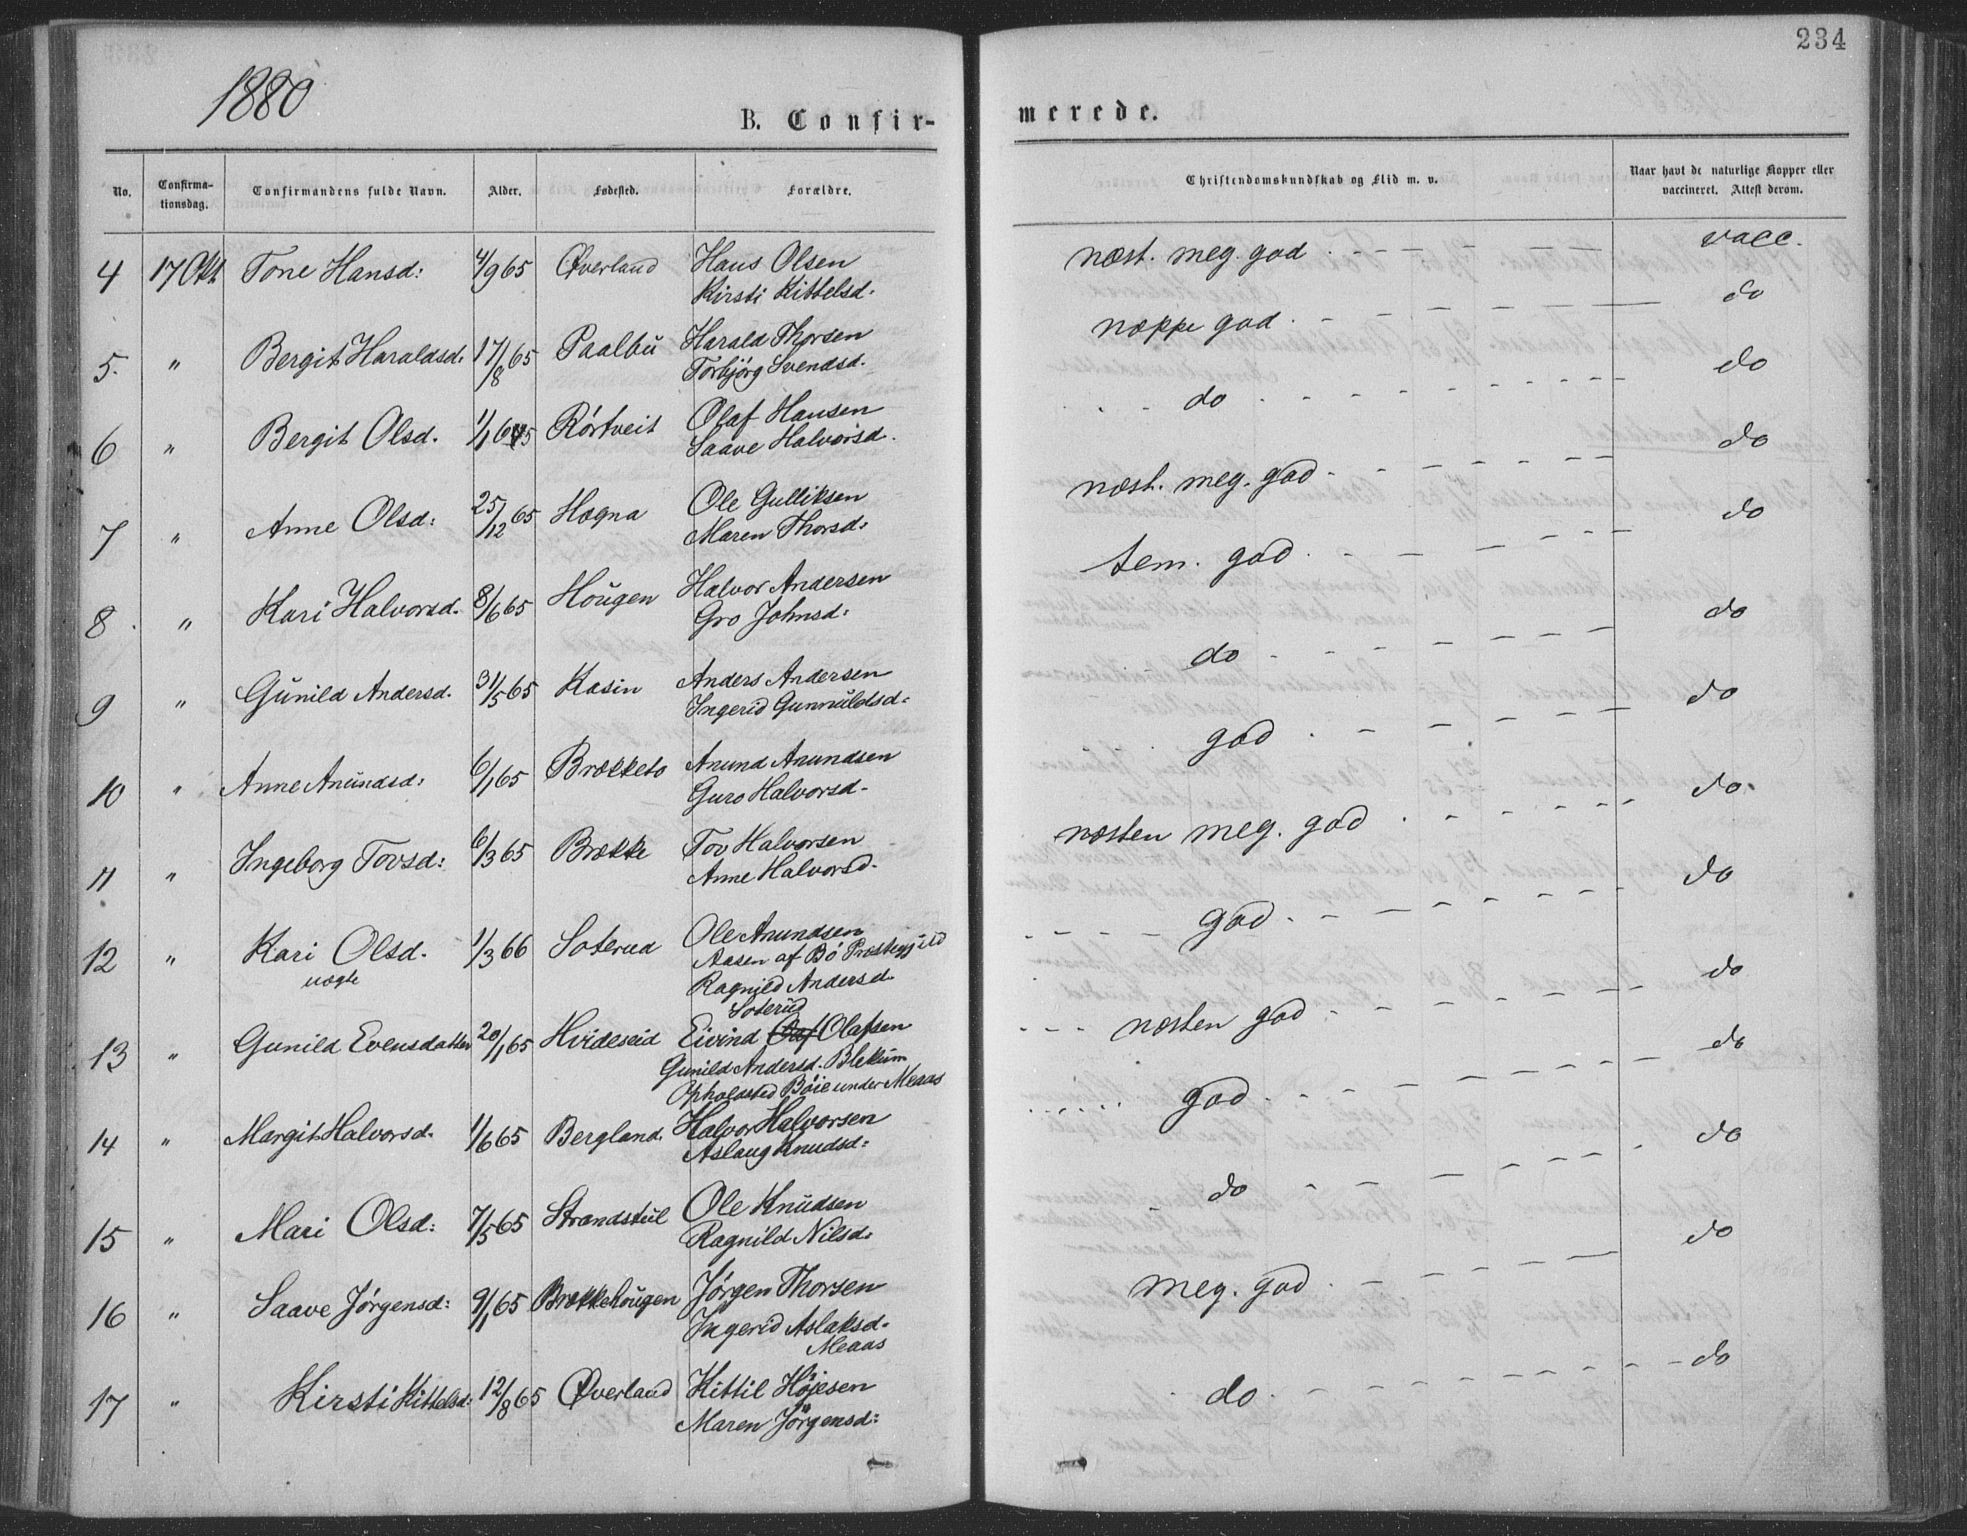 234
1880
B. Confir-
merede.
No.
Confirma-
tionsdag.
Confirmandens fulde Navn.
Alder.
Fødested.
Forældre.
Christendomskundskab og Flid m. v.
Naar havt de naturlige Kopper eller
vaccineret. Attest derom.
4 17 Okt Tone Hansd: 4/9 65 Øverland Hans Olsen næst. meg. god vacc.
Kirsti Kittelsd.
5. " Bergit Haraldsd. 17/8 65 Paalbu Harald Thorsen næppe god do
Torbjörg Svendsd.
6 " Bergit Olsd. 1/1 65 Rórtveit Olaf Hansen do do
Saave Halvorsd.
7 " Anne Olsd: 25/12 65 Hægna Ole Gulliksen næst. meg. god do
Maren Thorsd:
8. " Kari Halvorsd. 8/6 65 Hougen Halvor Andersen tem. god do
Gro Johnsd:
9 " Gunild Andersd. 31/5 65 Kasin Anders Andersen do do
Ingerid Gunnuldsd:
10 " Anne Anundsd: 6/1 65 Brækketo Anund Anundsen god do
Guro Halvorsd.
11 " Ingeborg Tovsd: 6/3 65 Brække Tov Halvorsen næsten meg. god do.
Anne Halvorsd.
12 " Kari Olsd. 1/3 66 Soterud Ole Anundsen god do
uægte
Aasen af Bó Præstegjeld
Ragnild Andersd.
Soterud
13 " Gunild Evensdatter 20/1 65 Hvideseid Eivind Olafsen næsten god do
Gunild Andersd. Blekum
Opholdsted Bóie under Meaas
14 " Margit Halvorsd. 1/6 65 Bergland Halvor Halvorsen god do
Aslaug Knudsd:
15 " Mari Olsd: 7/5 65 Strandstul Ole Knudsen do do
Ragnild Nilsd:
16 " Saave Jórgensd: 9/1 65 Brækkehougen Jórgen Thorsen meg. god do
Ingerid Aslaksd.
Meaas
17 " Kirsti Kittelsd: 12/8 65 Øverland Kittil Højesen do do
Maren Jörgensd: